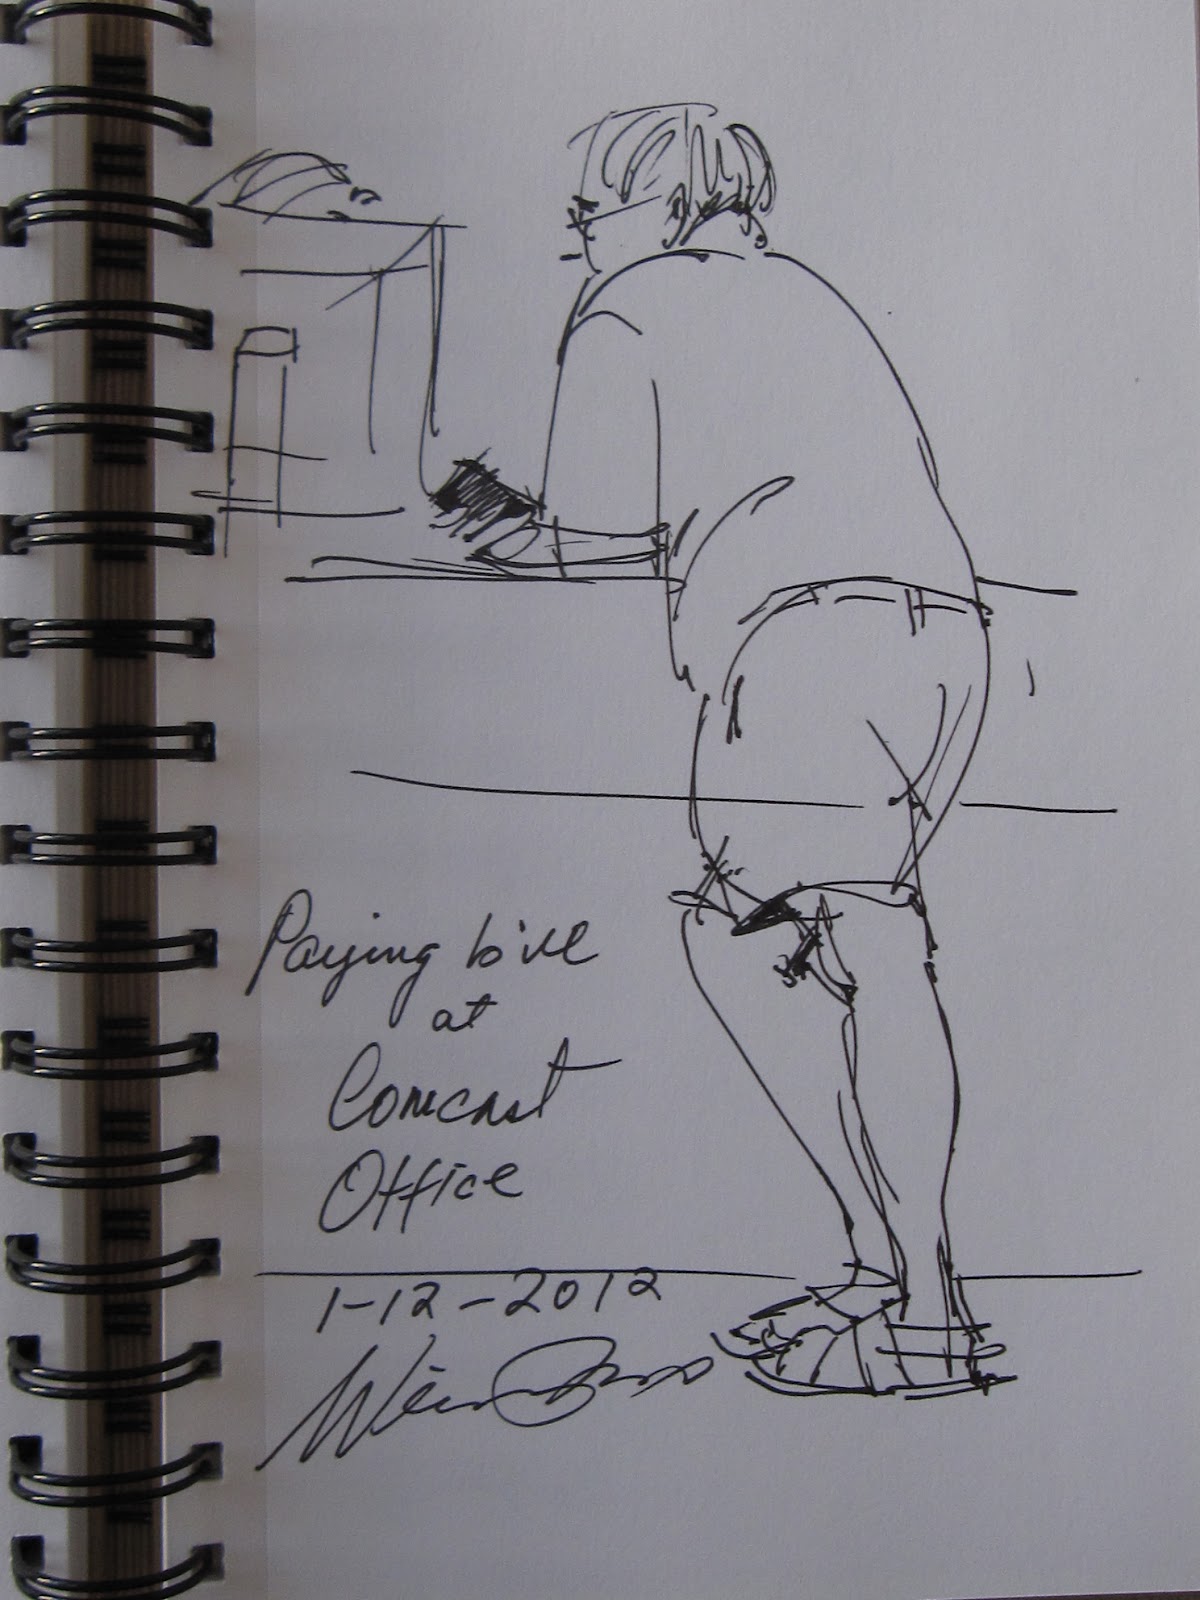 Paying bill
at
Comcast
Office
1-12-2012